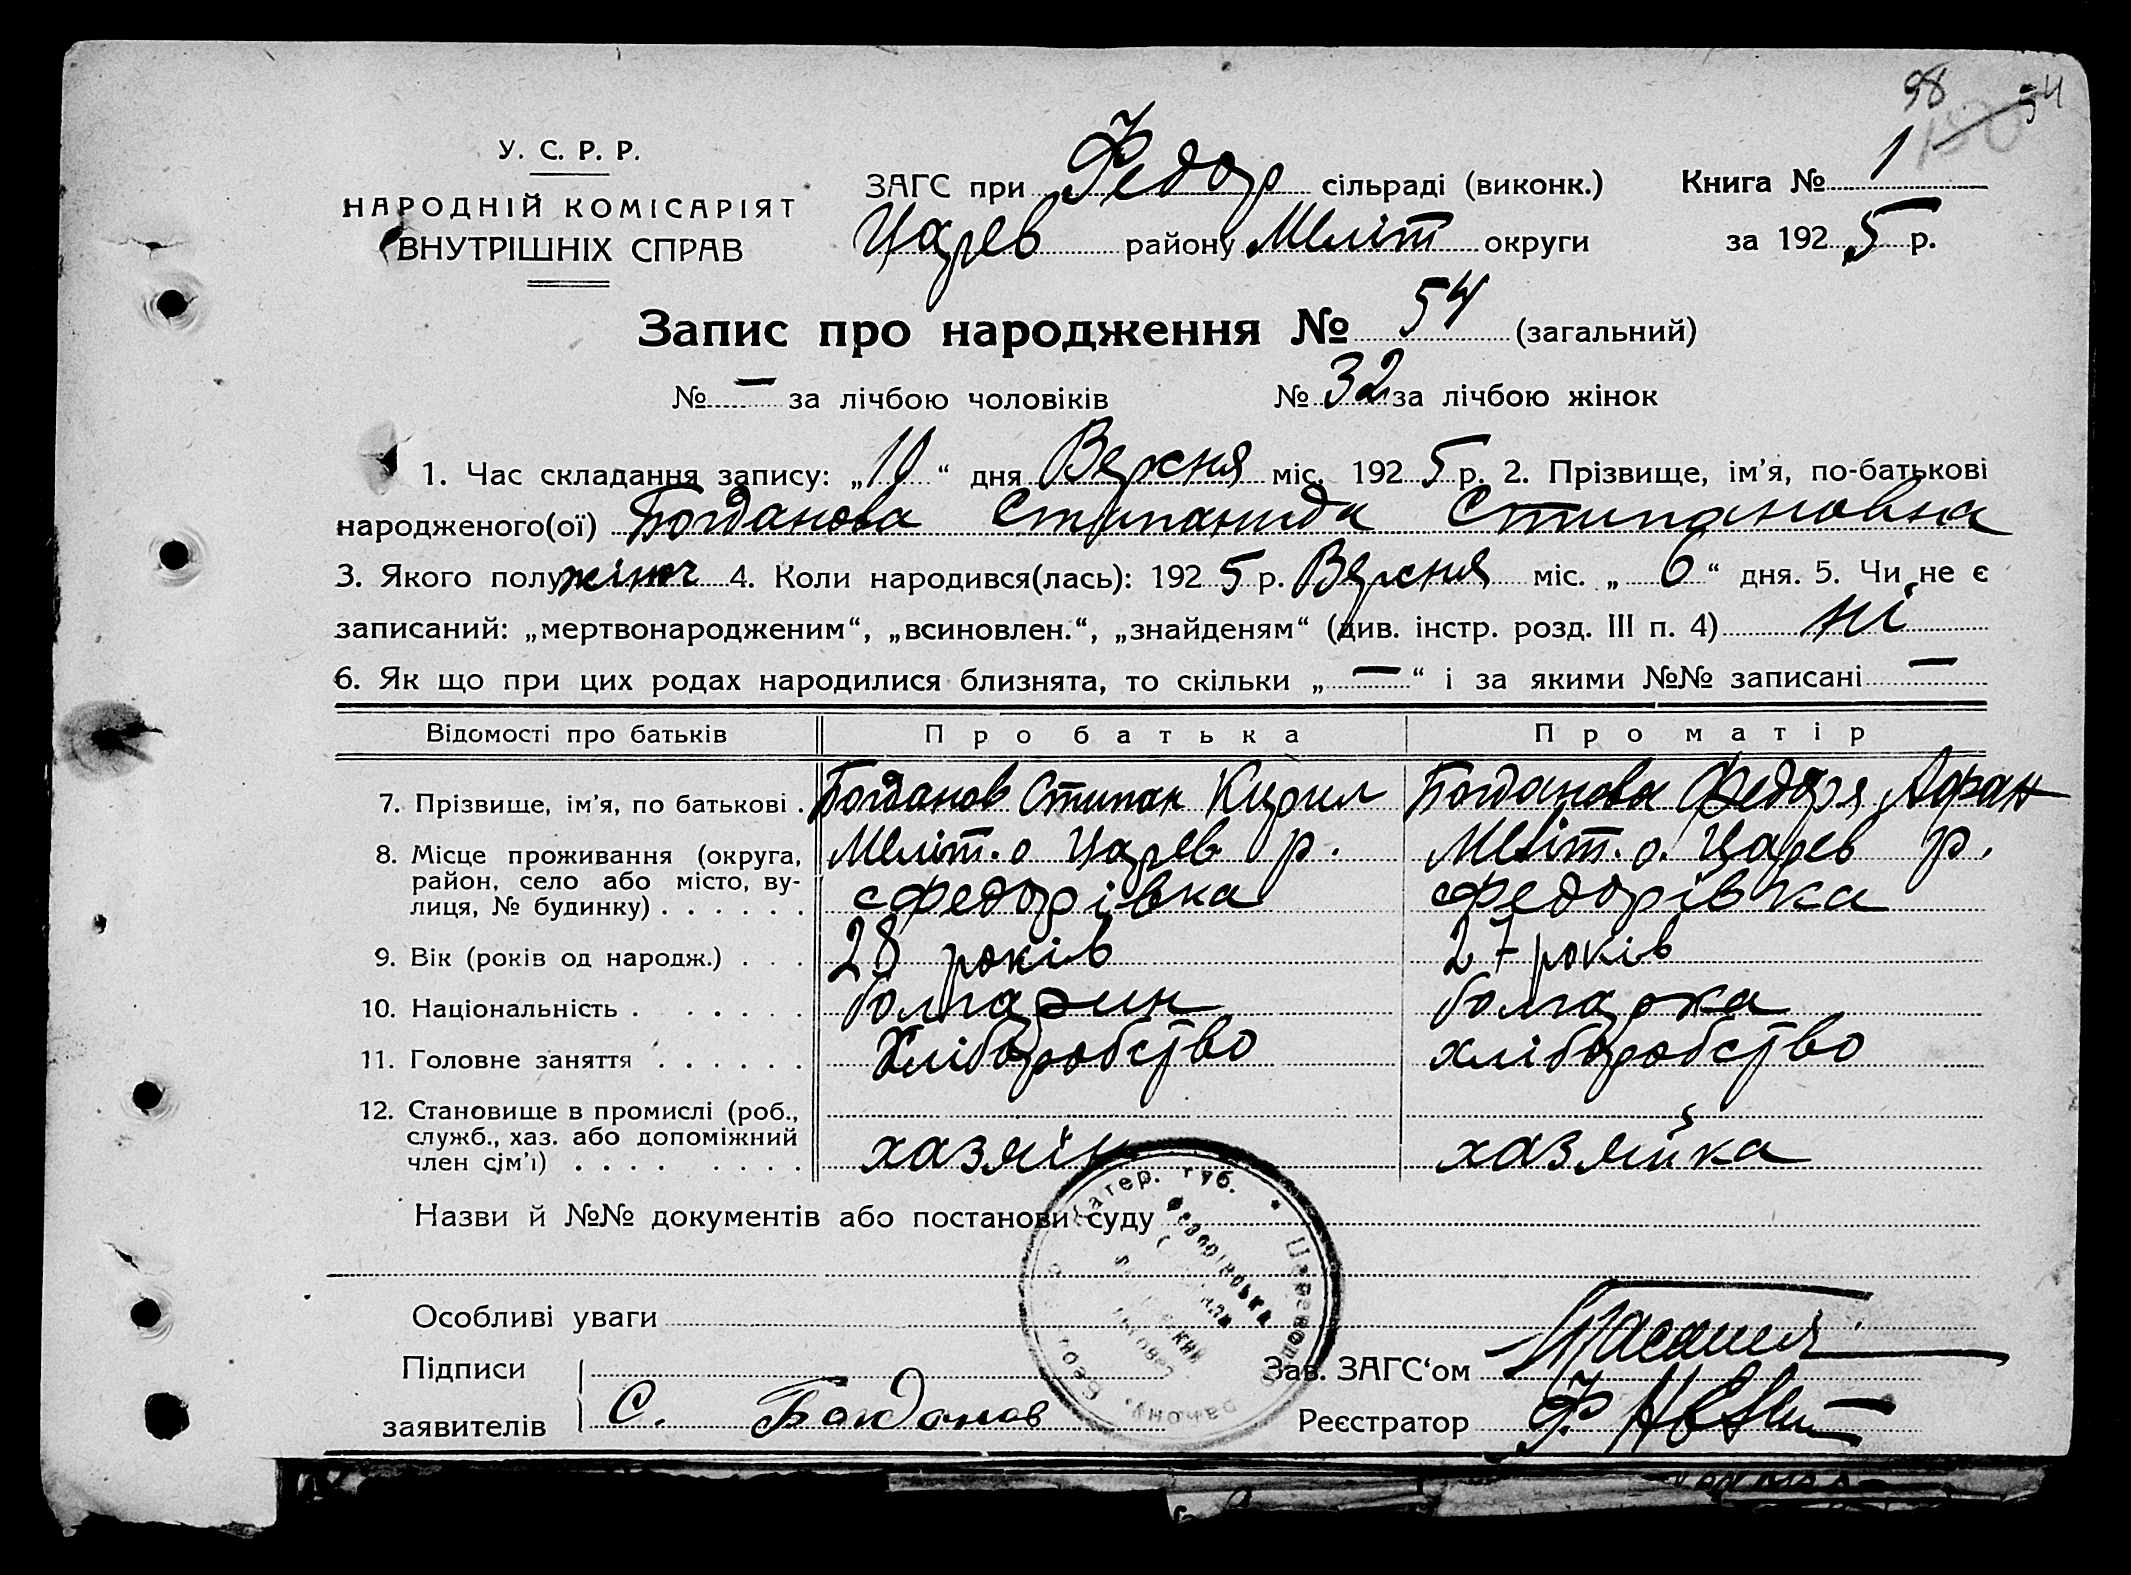 98 54
150
У. С. Р. Р.
НАРОДНІЙ КОМІСАРІЯТ
ВНУТРІШНІХ СПРАВ
ЗАГС при Федор сільраді (виконк.) Книга № 1
Царев району Меліт округи за 1925 р.
Запис про народження № 54 (загальний)
№ — за лічбою чоловіків № 32 за лічбою жінок
1. Час складання запису: „10“ дня Версня міс. 1925 р. 2. Прізвище, ім’я, по-батькові
народженого(ої) Богданова Стипанида Стипановна
3. Якого полу жіноч 4. Коли народився(лась): 1925 р. Версня міс. „6“ дня. 5. Чи не є
записаний: „мертвонародженим“, „всиновлен.“, „знайденям“ (див. інстр. розд. III п. 4) ні
6. Як що при цих родах народилися близнята, то скільки „—“ і за якими №№ записані —
Відомості про батьків Про батька Про матір
7. Прізвище, ім’я, по батькові . Богданов Стипан Кирил Богданова Федора Афан
8. Місце проживання (округа, Меліт. о Царев р. Меліт. о. Царев р.
район, село або місто, ву-
лиця, № будинку) . . . . . . с Федорівка с Федорівка
9. Вік (років од народж.) . . . 28 років 27 років
10. Національність . . . . . . болгарин болгарка
11. Головне заняття . . . . . . Хліборобство хліборобство
12. Становище в промислі (роб.,
служб., хаз. або допоміжний
член сім’ї) . . . . . . . . хазяїн хазяйка
Катер. губ. Царевод району
Федорівська
Назви й №№ документів або постанови суду
Особливі уваги
Підписи
заявителів С. Богданов
Зав. ЗАГС‘ом
Реєстратор Ф.